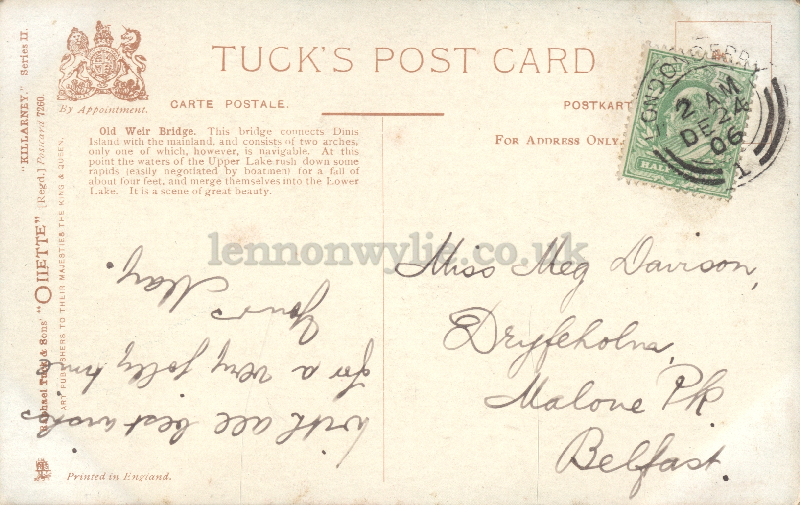 TUCK'S POST CARD
By Appointment.
CARTE POSTALE.
POSTKART
FOR ADDRESS ONLY.
Old Weir Bridge. This bridge connects Dinis
Island with the mainland, and consists of two arches,
only one of which, however, is navigable. At this
point the waters of the Upper Lake rush down some
rapids (easily negotiated by boatmen) for a fall of
about four feet, and merge themselves into the Lower
Lake. It is a scene of great beauty.
"KILLARNEY." Series II.
Raphael Tuck & Sons' "OILETTE" [Regd.] Postcard 7260.
ART PUBLISHERS TO THEIR MAJESTIES THE KING & QUEEN.
Printed in England.
LONDONDERRY
2 AM
DE 24
06
1
HALF
Miss Meg Davison,
Dryfeholm,
Malone Pk
Belfast.
With all best wishes
for a very jolly time
Yours
May.
lennonwylie.co.uk